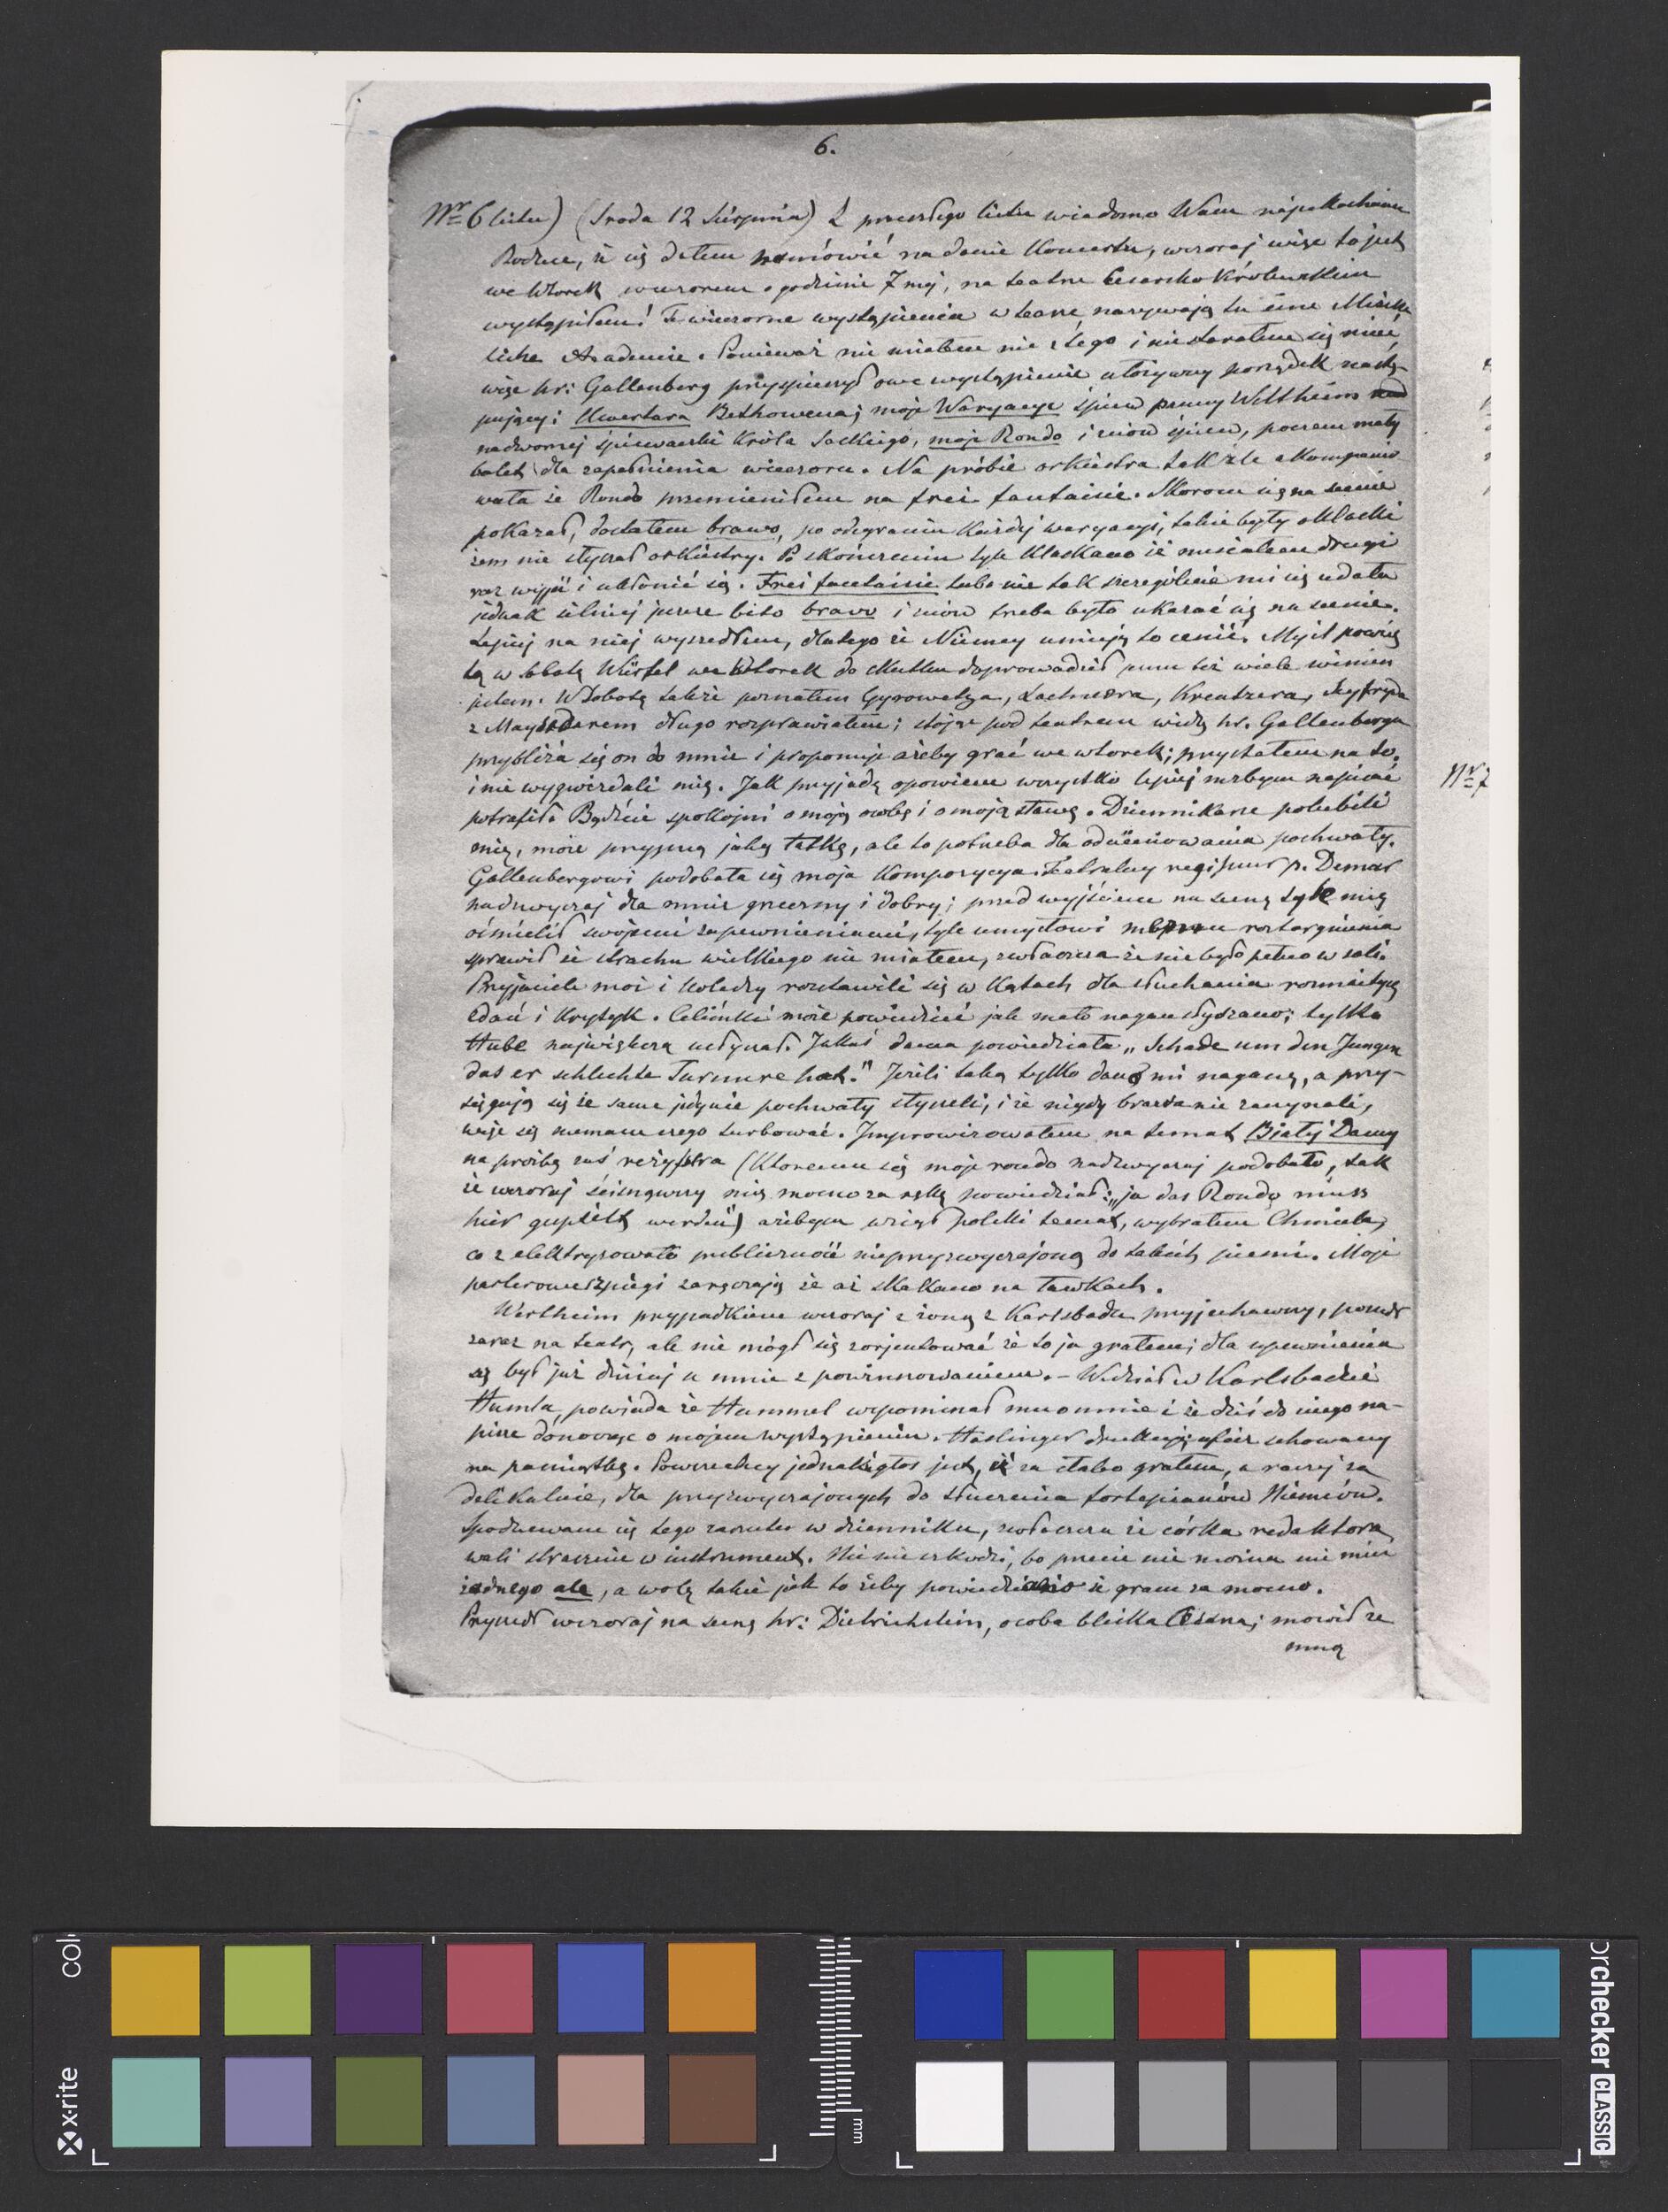 6.
Nr 6 listu) (Sroda 12 Sierpnia) Z przeszłego listu wiadomo Wam najukochańsi
Rodzice, iż się dałem namówić na danie Koncertu, wczoraj więc to jest
we Wtorek wieczorem o godzinie 7mej, na teatrze Cesarsko Królewskim
wystąpiłem! Te wieczorne wystąpienia w teatrze nazywają tu
Academie. Ponieważ nic miałem nic z tego i nie starałem się mieć,
więc hr: Gallenberg przyspieszył owe wystąpienie ułożywszy porządek nastę-
pujący: Uwertura Bethowena; moje Waryacye śpiew panny Veltheim
nadwornej śpiewaczki Króla Saskiego, moje Rondo i znów śpiew, poczem mały
balet dla zapełnienia wieczoru. Na próbie orkiestra tak źle akompanio
wała że Rondo przemieniłem na frei fantaisie. Skorom się na scenie
pokazał, dostałem brawo, po odegraniu każdej waryacyi, takie były oklaski
żem nie słyszał orkiestry. Po skończeniu tyle klaskano iż musiałem drugi
raz wyjść i ukłonić się. Frei fantaisie lubo nie tak szczególnie mi się udała
jednak silniej jeszcze bito bravo i znów trzeba było ukazać się na scenie.
Lepiej na niej wyszedłem, dlatego że Niemcy umieją to cenić. Myśl powzię
tą w Sobotę Würfel we Wtorek do skutku doprowadził jemu też wiele winien
jestem. W Sobotę także poznałem Gyrowetza, Lachnera, Kreutzera, Seyfryda
z Maysederem długo rozprawiałem; stojąc pod teatrem widzę hr. Gallenberga
przybliża się on do mnie i proponuje ażeby grać we wtorek; przystałem na to,
i nie wygwizdali mię. Jak przyjadę opowiem wszystko lepiej niżbym napisać
potrafił. Bądźcie spokojni o moją osobę i o moją sławę. Dziennikarze polubili
mię, może przypną jaką łatkę, ale to potrzeba dla odcieniowania pochwały.
Gallenbergowi podobała się moja Kompozycya. Teatralny regisseur p. Demar
nadzwyczaj dla mnie grzeczny i dobry; przed wyjściem na scenę tyle mię
ośmielił swojemi zapewnieniami, tyle umysłowi memu roztargnienia
sprawił że strachu wielkiego nie miałem, zwłaszcza że nie było pełno w sali.
Przyjaciele moi i koledzy rozstawili się w kątach dla słuchania rozmaitych
zdań i krytyk. Celiński może powiedzieć jak mało nagan słyszano; tylko
Hube największą usłyszał. Jakaś dama powiedziała „Schade um den Jungen
das er schlechte Turnure hat." Jeżeli taką tylko dano mi naganę, a przy-
sięgają się że same jedynie pochwały słyszeli, i że nigdy brawa nie zaczynali,
więc się niemam czego turbować. Improwizowałem na temat Biały Damy
na prośbę zaś reżysera (któremu się moje rondo nadzwyczaj podobało, tak
iż wczoraj ścisnąwszy mię mocno za rękę powiedział: „ja das Rondo muss
hier gespielt werden) ażebym wziął polski temat, wybrałem Chmiela,
co zelektryzowało publiczność nieprzyzwyczajoną do takich pieśni. Moje
parterowe szpiegi zaręczają że aż skakano na ławkach.
Wertheim przypadkiem wczoraj z żoną z Karlsbadu przyjechawszy, poszedł
zaraz na teatr, ale nie mógł się zorjentować że to ja grałem; dla upewnienia
się był już dzisiaj u mnie z powinszowaniem. – Widział w Karlsbadzie
Humla, powiada że Hummel wspominał mu o mnie i że dziś do niego na-
pisze donosząc o mojem wystąpieniu. Haslinger drukuje afisz schowany
na pamiątkę. Powszechny jednak głos jest, iż za słabo grałem, a raczej za
delikatnie, dla przyzwyczajonych do tłuczenia fortepianów Niemców.
Spodziewam się tego zarzutu w dzienniku, zwłaszcza że córka redaktora
wali strasznie w instrument. Nic nie szkodzi, bo przecie nie można nie mieć
żadnego ale, a wolę takie jak to żeby powiedziano że gram za mocno.
Przyszedł wczoraj na scenę hr: Dietrichstein, osoba bliska Cesarza; mówił ze
mną
Nr 7